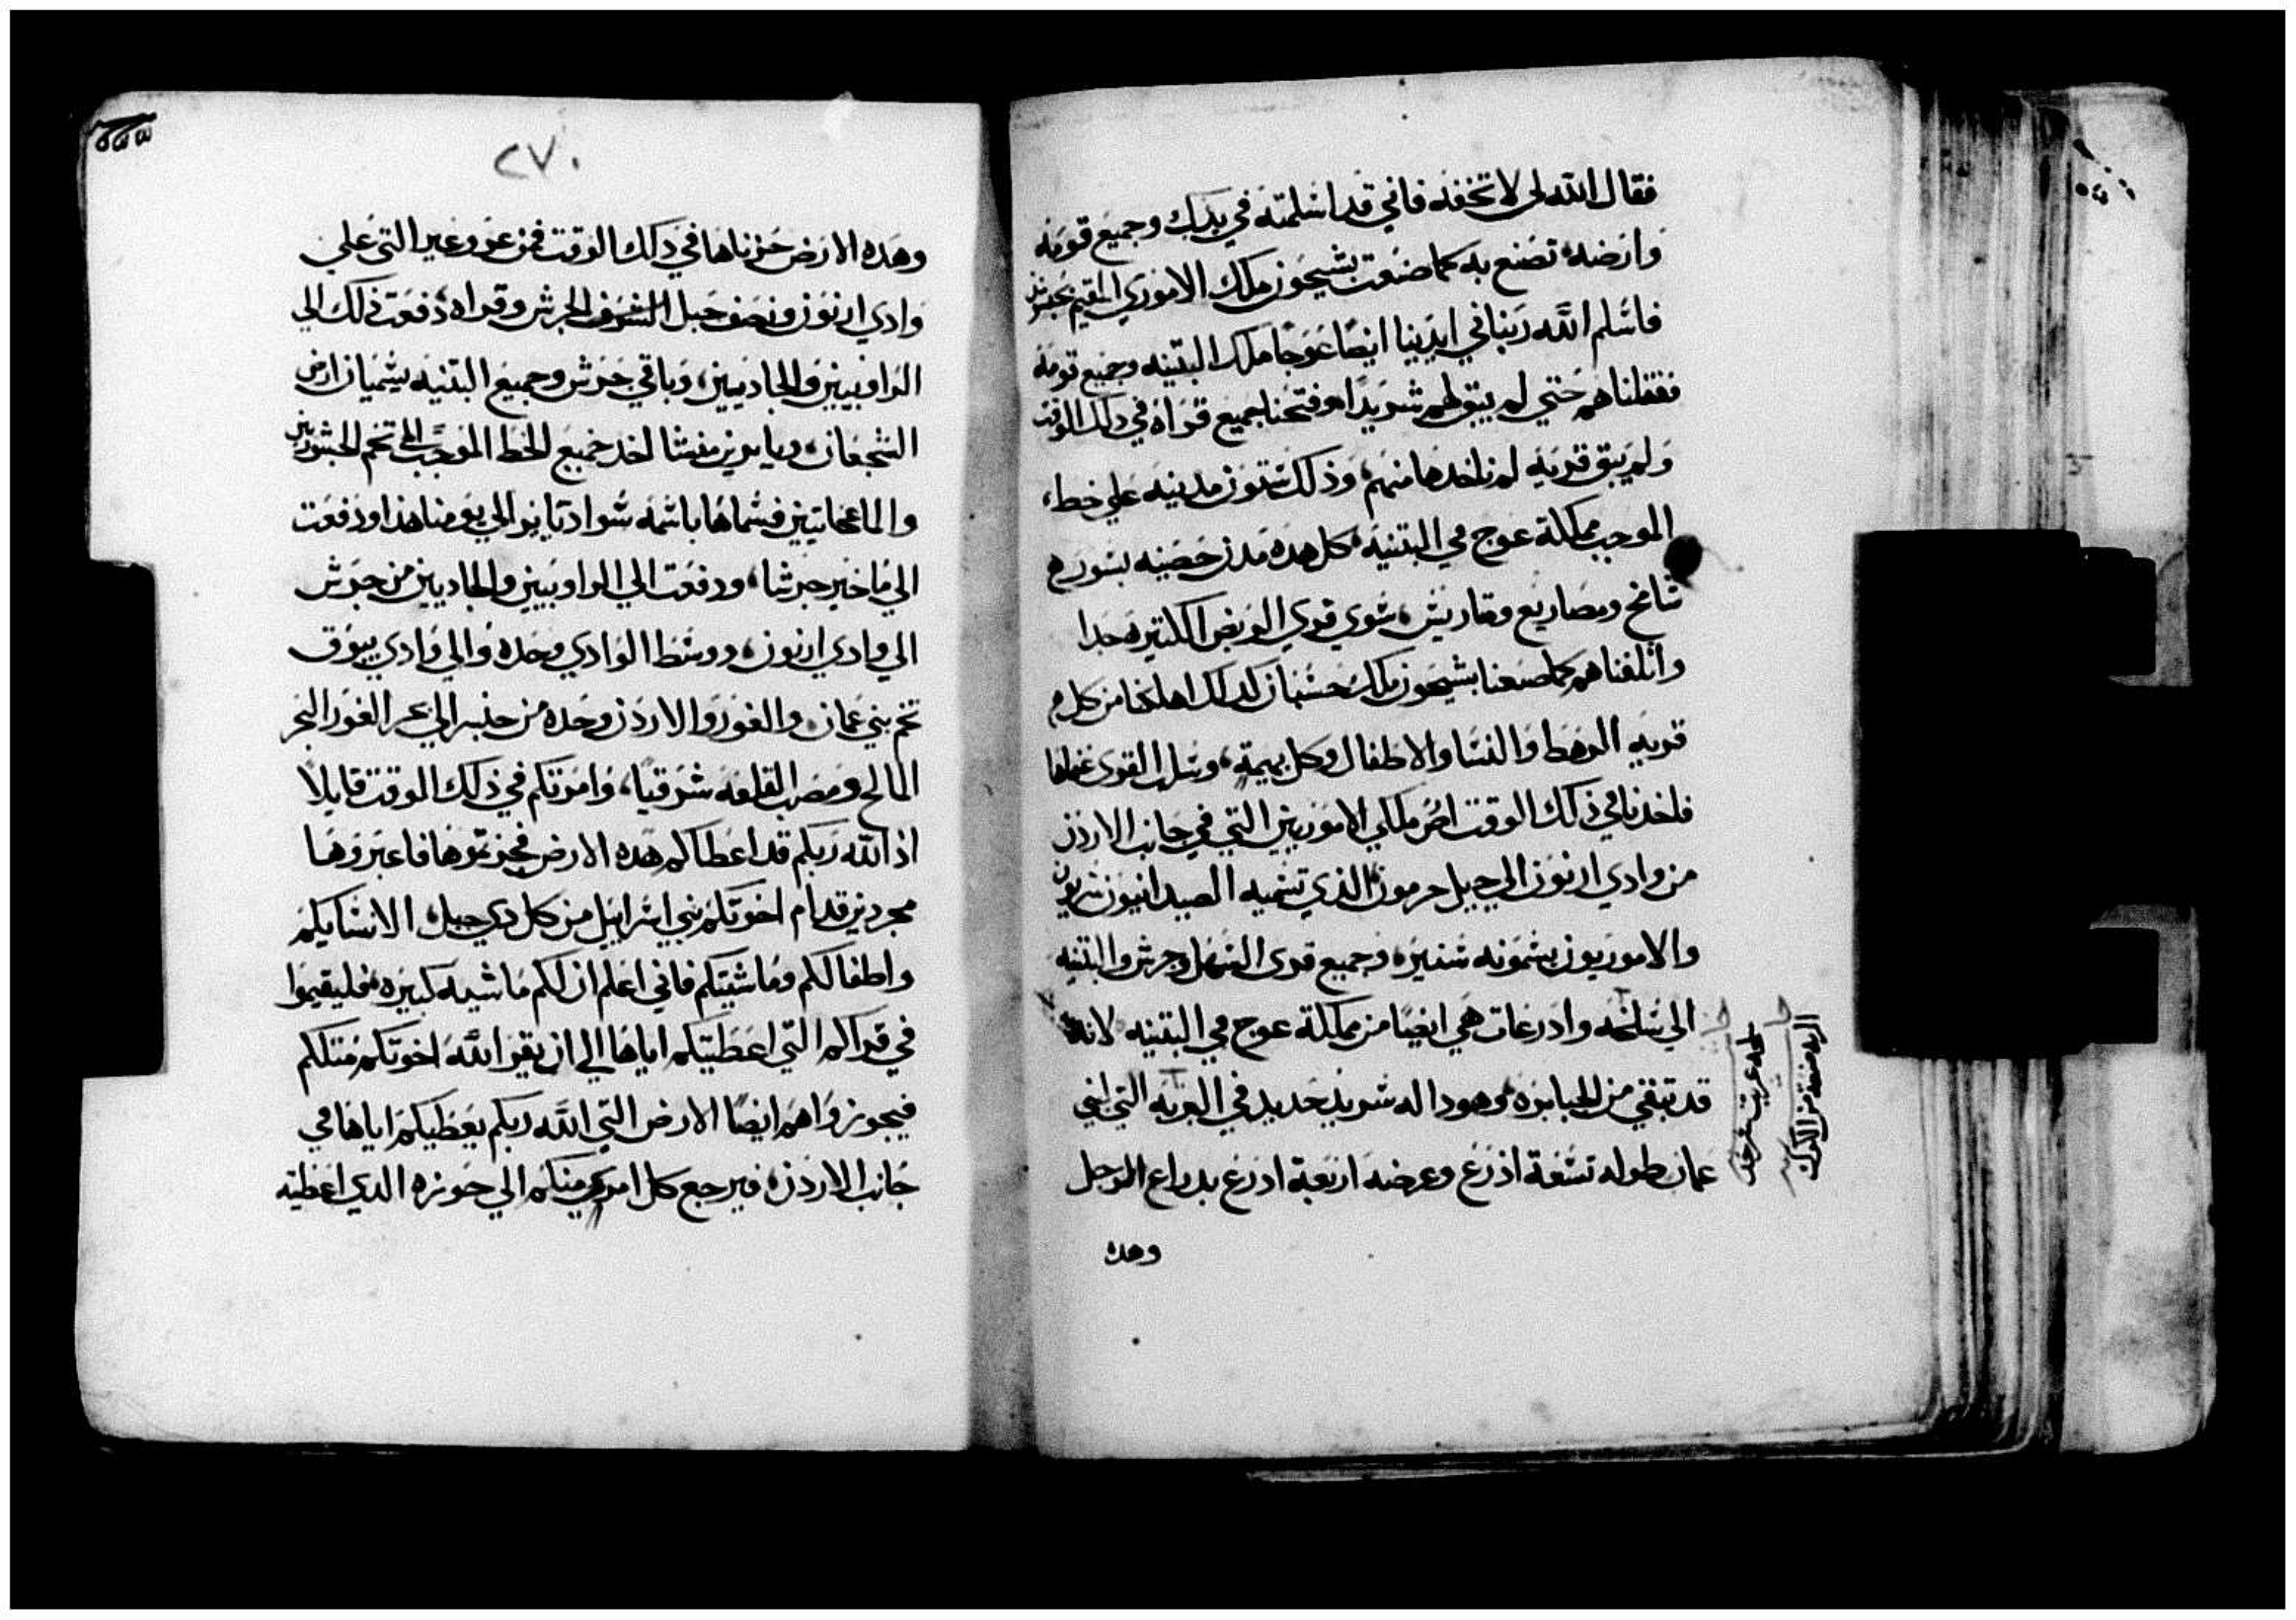 فقال الله لي لا تخفه فاني قد اسلمته في يدك وجميع قومه
وارضه تصنع به كما صنعت بشيحون ملك الاموري المقيم
فاسلم الله ربنا في ايدينا ايضًا عوجًا ملك البتنيه وجميع قومه
فقتلناهم حتي لم يبق لهم شريدًا وفتحنا جميع قراه في ذلك الوقت
ولم يبق قريه لم ناخدها منهم، وذلك ستون مدينه علي خط،
الموجب مملكة عوج في البتنيه، كل هده مدن حصينه بسور
شامخ ومصاريع ومتاريس، سوي قري الربض الكتيره جدا
واتلفناهم كما صنعنا بشيحون ملك حشبان كدلك اهلكنا من كل
قريه الرهط والنسا والاطفال وكل بهيمة، وسلب القري غنمناها
فاخدنا في ذلك الوقت ارض ملكي الاموريين التي في جانب الاردن
من وادي ارنون الي جبل حرمون الذي تسميه الصيدانيون سريون
والاموريون يسمونه سنير، وجميع قري السهل وجرش والبتنيه
الي سلخه وادرعات هي ايضًا من مملكة عوج في البتنيه لانه
قد تبقي من الجبابره، وهودا له سرير حديد في الربه التي لبني
عمان طوله تسعة اذرع وعرضه اربعة ادرع بدراع الرجل
وهده
٢٧٠
وهده الارض حزناها في دلك الوقت فمن عروعير التي علي
وادي ارنون ونصف جبل الجرش وقراه، دفعت ذلك الي
الراوبيين والجاديين، وباقي جرش وجميع البتنيه يسميان ارض
الشجعان، وياير بن منشا اخد جميع الخط الموجب الي تخم الجشوريين
والماعخاتيين فسماها باسمه سواد ياير الي يومنا هذا ودفعت
الي ماخير جرشا، ودفعت الي الراوبيين والجاديين من جرش
الي وادي ارنون، ووسط الوادي وحده والي وادي يبوق
تخم بني عمان، والغور والاردن وحده من جنسر الي بحر الغور البحر
المالح ومصب القلعه شرقيًا، وامرتكم في ذلك الوقت قايلًا
اذ الله ربكم قد اعطاكم هده الارض فحزتموها فاعبروها
مجردين قدام اخوتكم بني اسراييل من كل دي حيل، الا نسايكم
واطفالكم وماشيتكم فاني اعلم ان لكم ماشيه كبيره، فليقيموا
في قراكم التي اعطيتكم اياها الي ان يقر الله اخوتكم متلكم
فيحوزوا هم ايضًا الارض التي الله ربكم يعطيكم اياها في
جانب الاردن، فيرجع كل امري منكم الي حوزه الدي اعطيته